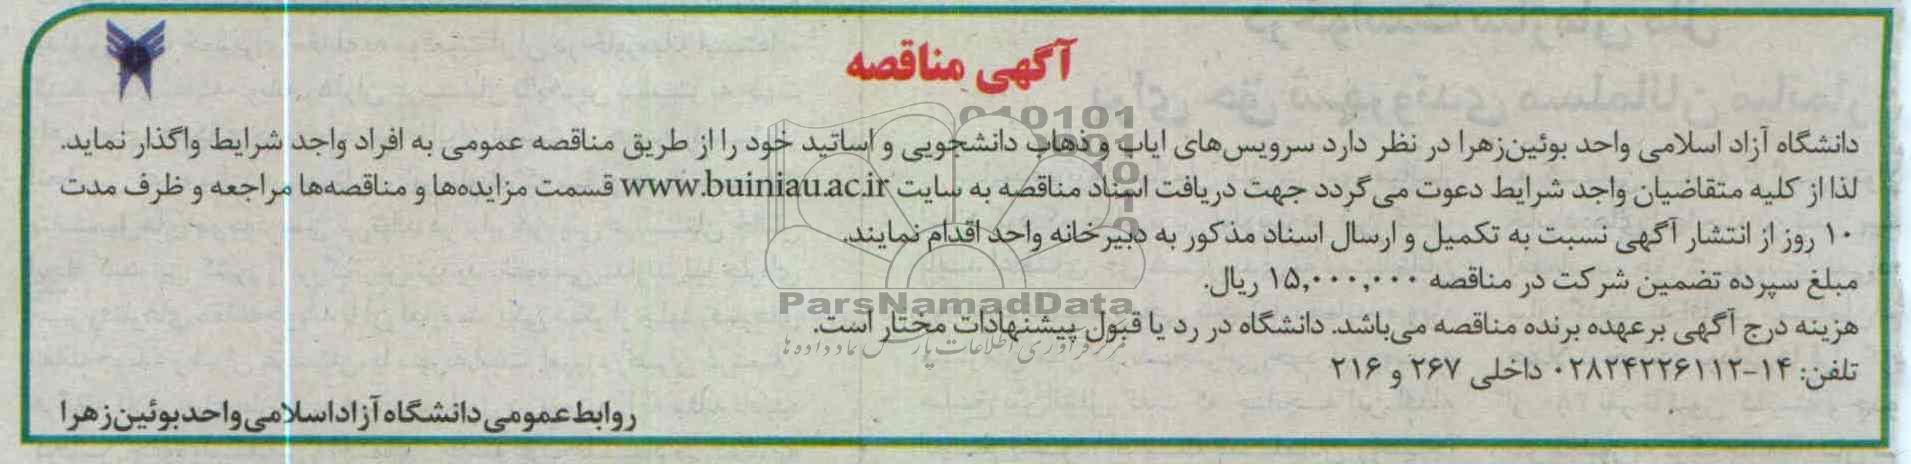 آگهی مناقصه
دانشگاه آزاد اسلامی واحد بوئین‌زهرا در نظر دارد سرویس‌های ایاب و ذهاب دانشجویی و اساتید خود را از طریق مناقصه عمومی به افراد واجد شرایط واگذار نماید.
لذا از کلیه متقاضیان واجد شرایط دعوت می‌گردد جهت دریافت اسناد مناقصه به سایت www.buiniau.ac.ir قسمت مزایده‌ها و مناقصه‌ها مراجعه و ظرف مدت
۱۰ روز از انتشار آگهی نسبت به تکمیل و ارسال اسناد مذکور به دبیرخانه واحد اقدام نمایند.
مبلغ سپرده تضمین شرکت در مناقصه ۱۵,۰۰۰,۰۰۰ ریال.
ParsNamadData
هزینه درج آگهی برعهده برنده مناقصه می‌باشد. دانشگاه در رد یا قبول پیشنهادات مختار است.
مرکز فرآوری اطلاعات پارس نماد داده ها
تلفن: ۱۴-۰۲۸۲۴۲۲۶۱۱۲ داخلی ۲۶۷ و ۲۱۶
روابط عمومی دانشگاه آزاد اسلامی واحد بوئین‌زهرا